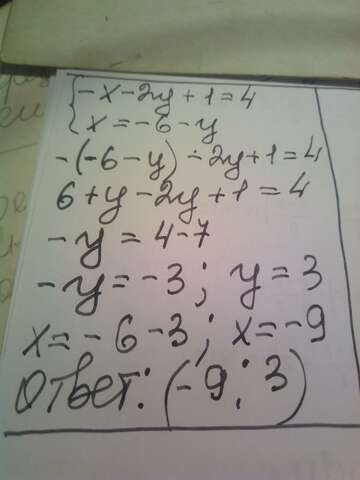 {-x-2y+1=4
x=-6-y
-(-6-y)-2y+1=4
6+y-2y+1=4
-y=4-7
-y=-3; y=3
x=-6-3; x=-9
Ответ: (-9; 3)